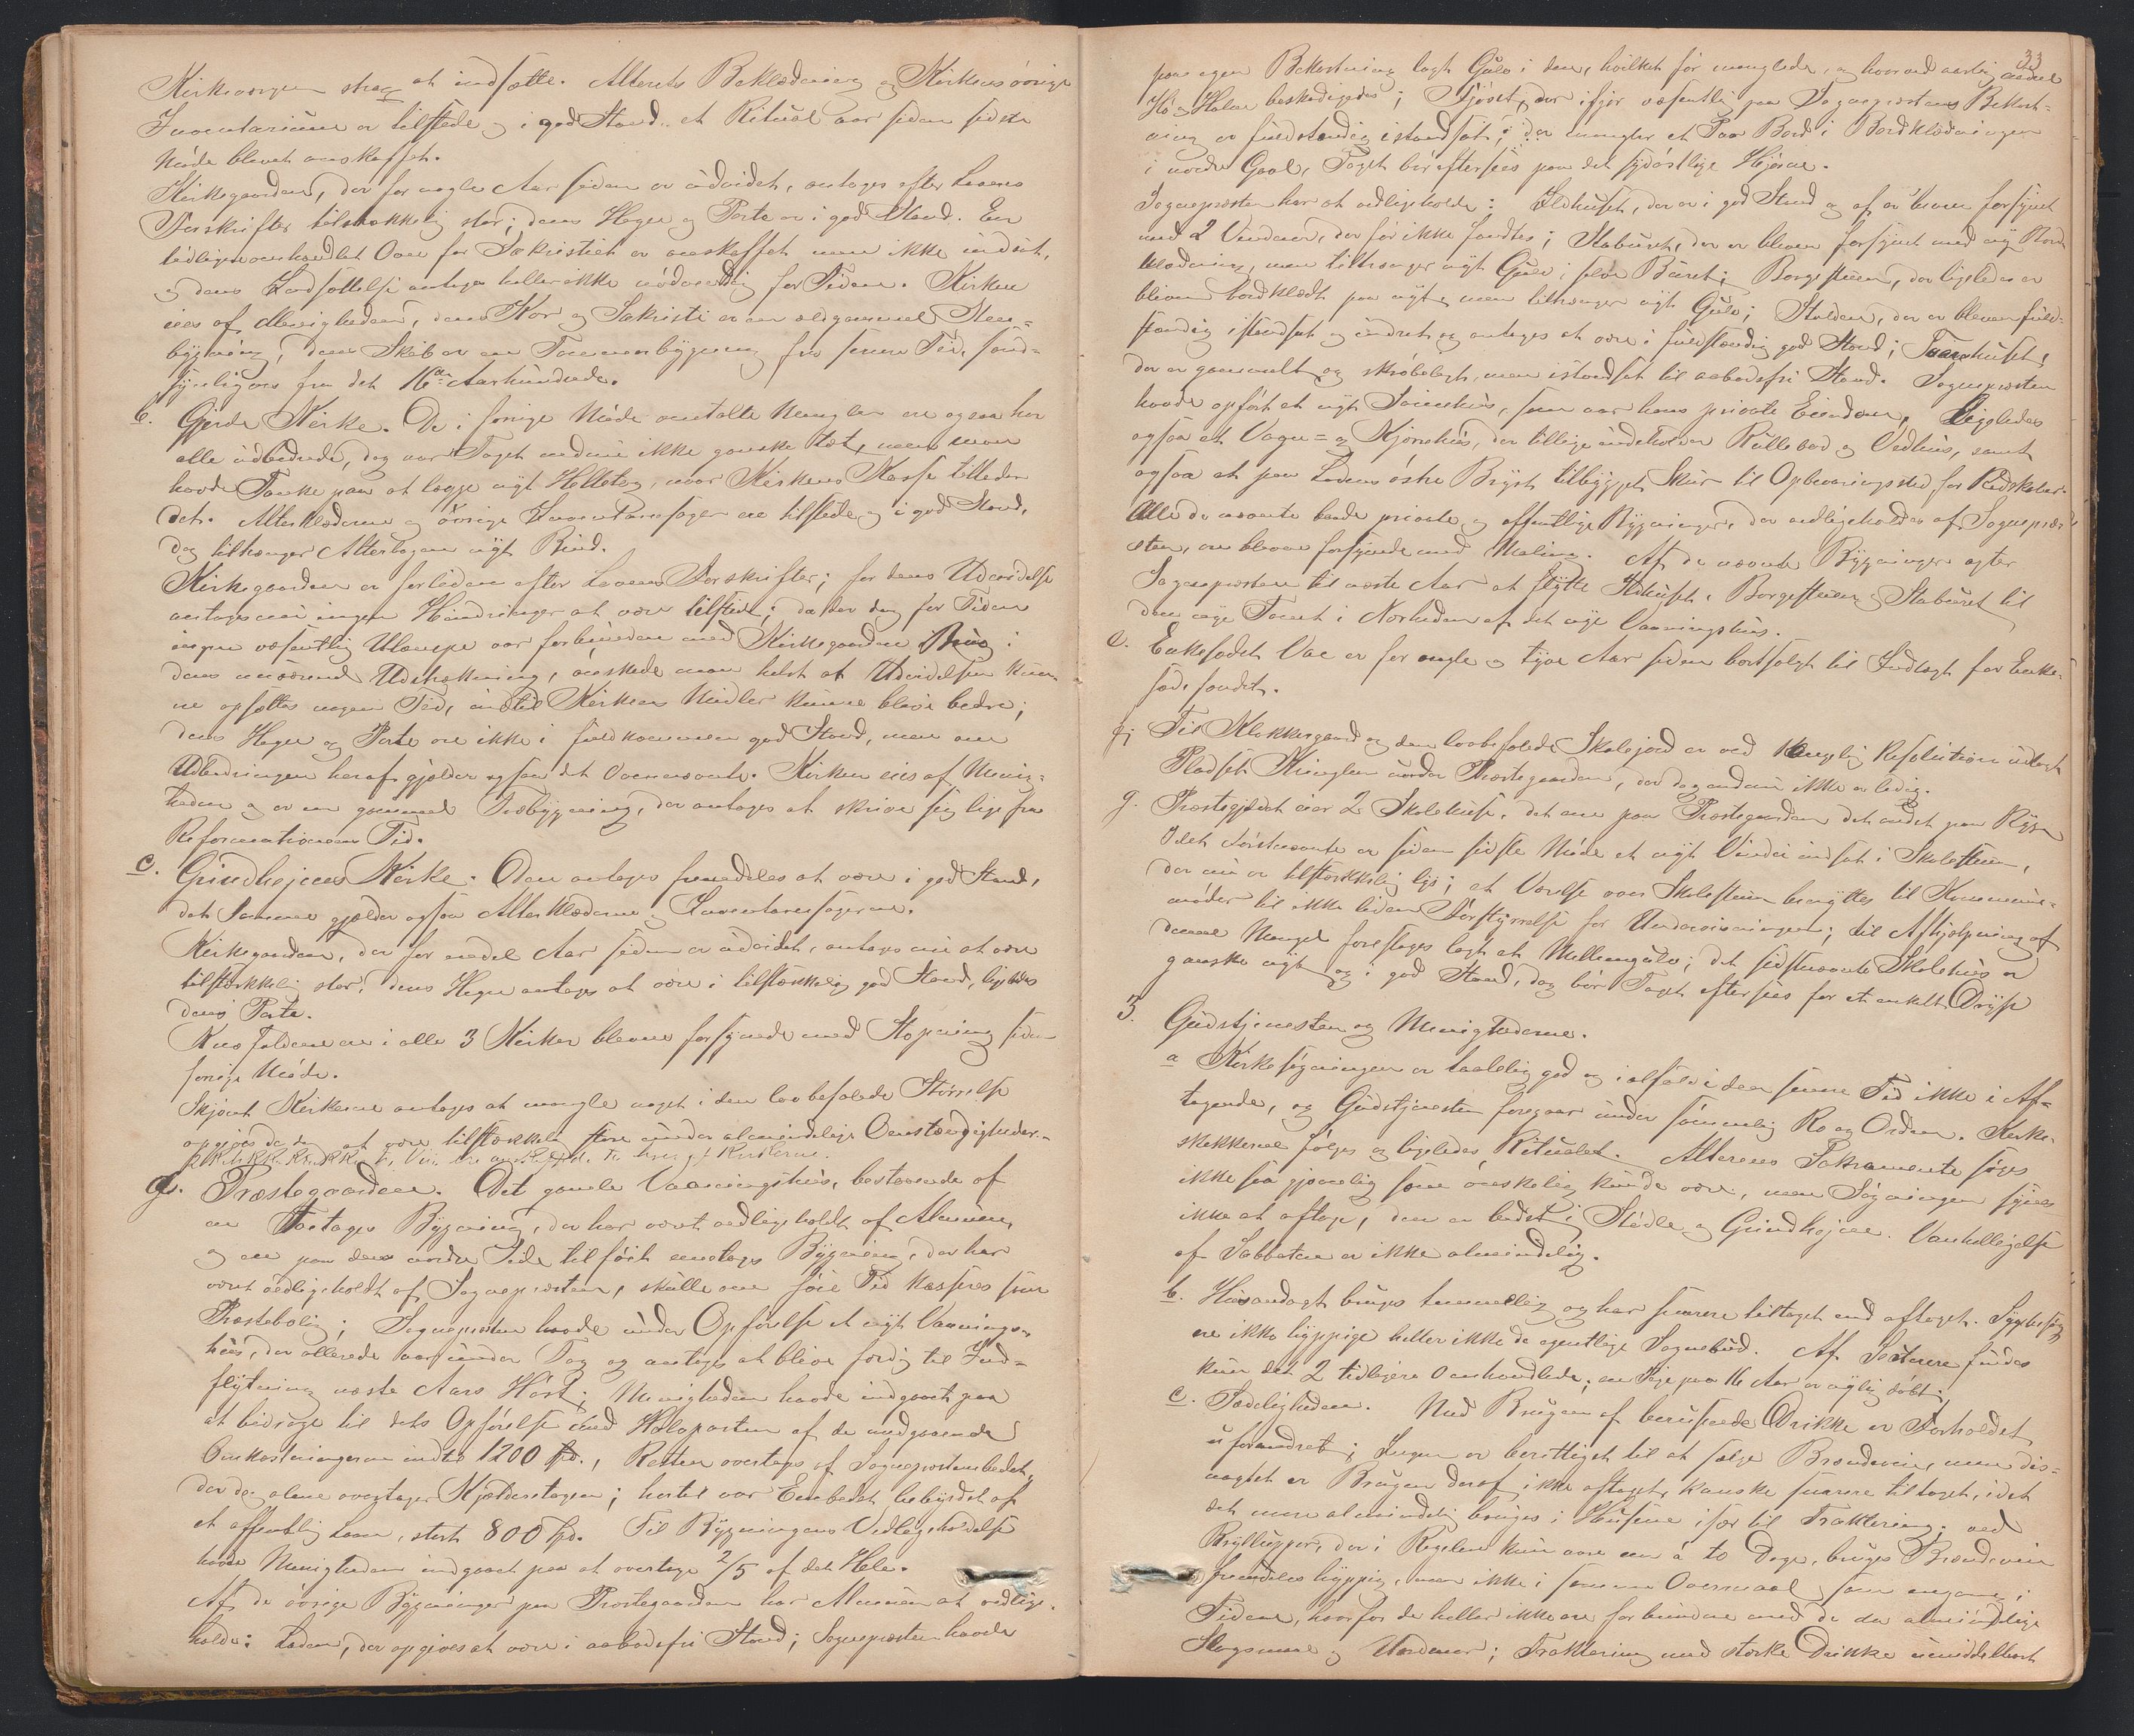 Kirkeværgen strax at indsætte. Alterets Beklædning og Kirkens øvrige
Inventarium er tilstede og i god Stand. et Ritual var siden sidste
Møde blevet anskaffet.
Kirkegaarden, der for nogle Aar siden er udvidet, antages efter Lovens
Forskrifter tilstrækkelig stor; dens Hegn og Porte er i god Stand. En
tidligere omhandlet Ovn for Sakristiet er anskaffet men ikke indsat,
og dens Indsættelse antages heller ikke nødvendig for Tiden. Kirken
eies af Menigheden, dens Kor og Sakristi er en ældgammel Steen-
bygning, dens Skib er en Tømmerbygning fra senere Tid, sand-
synligvis fra det 16de Aarhundrede.
b. Gjerde Kirke. De i forrige Møde omtalte Mangler ere ogsaa her
alle udbedrede, dog var Taget endnu ikke ganske tæt, men man
havde Tanke paa at lægge nyt Helletag, naar Kirkens Kasse tilleder
det. Alterklæderne og øvrige Inventariesager ere tilstede og i god Stand,
dog tiltrænger Alterbogen nyt Bind.
Kirkegaarden er for liden efter Lovens Forskrifter; for dens Udvidelse
antages nu ingen Hindringer at være tilstede; da der dog for Tiden
ingen væsentlig Ulempe var forbunden med Kirkegaardens Brug i
dens nuværende Udstrækning, ønskede man helst at Udvidelsen kun-
ne opsættes nogen Tid, indtil Kirkens Midler kunne blive bedre;
dens Hegn og Porte ere ikke i fuldkommen god Stand, men om
Udbedringen heraf gjælder ogsaa det Ovennævnte. Kirken eies af Menig-
heden og er en gammel Træbygning, der antages at skrive sig lige fra
Reformationens Tid.
c. Grindhejms Kirke. Den antages fremdeles at være i god Stand,
det Samme gjælder ogsaa Alterklæderne og Inventariesagerne.
Kirkegaarden, der for en del Aar siden er udvidet, antages nu at være
tilstrækkelig stor, dens Hegn antages at være i tilstrækkelig god Stand, ligeledes
dens Porte.
Knæfaldene ere i alle 3 Kirker blevne forsynede med Stopning siden
forrige Møde.
Skjønt Kirkerne antages at mangle noget i den lovbefalede Størrelse
opgives de dog at være tilstrækkelig store under almindelige Omstændigheder.
d. Præstegaarden. Det gamle Vaaningshus, bestaaende af
en Toetages Bygning, der har været vedligeholdt af Almuen,
og en paa dens nordre Side tilføiet enetages Bygning, der har
været vedligeholdt af Sognepræsten, skulle om føie Tid kasseres som
Præstebolig; Sognepræsten havde under Opførelse et nyt Vaanings-
huus, der allerede var under Tag og antages at blive færdig til Ind-
flytning næste Aars Høst; Menigheden havde indgaaet paa
at bidrage til dets Opførelse med Halvparten af de medgaaende
Omkostningerne indtil 1200 Spd., Resten overtages af Sognepræstembedet,
der dog alene overtager Kjelderetagen; hertil var Embedet bebyrdet af
et offentlig Laan, stort 800 Spd. Til Bygningens Vedligeholdelse
havde Menigheden indgaaet paa at overtage 2/5 af det Hele.
Af de øvrige Bygninger paa Præstegaarden har Almuen at vedlige-
holde: Laden, der opgives at være i aabodsfri Stand; Sognepræsten havde
33
paa egen Bekostning lagt Gulv i den, hvilket før manglede, og hvorved aarlig en del
Hø og Halm beskadigedes; Fjøset, der ifjor væsentlig paa Sognepræstens Bekost-
ning er fuldstændig istandsat, der mangler et Par Bord i Bordklædningen
i nordre Gavl, Taget bør eftersees paa det sydøstlige Hjørne.
Sognepræsten har at vedligeholde: Ildhuset, der er i god Stand og er bleven forsynet
med 2 Vinduer, der før ikke fandtes; Staburet, der er bleven forsynet med ny Bord
klædning, men tiltrænger nyt Gulv i selve Buret; Borgestuen, der ligeledes er
bleven bordklædt paa nyt, men tiltrænger nyt Gulv; Stalden, der er bleven fuld-
stændig istandsat og indredt og antages at være i fuldstændig god Stand;
der er gammelt og skrøbeligt, men istandsat til aabodsfri Stand. Sognepræsten
havde opført et nyt hus, som var hans private Eiendom, Ligeledes
ogsaa et Vogn- og Kjørehus, der tillige indeholder Rullebod og Vedhus, samt
ogsaa et paa Ladens østre Bryst tilbygget Skur til Opbevaringssted for Redskaber.
Alle de nævnte baade private og offentlige Bygninger, der vedligeholdes af Sognepræ-
sten, ere blevne forsynede med Maling. Af de nævnte Bygninger agter
Sognepræsten til næste Aar at flytte Ildhuset, Borgestuen og Staburet til
den nye Tomt i Nærheden af det nye Vaaningshus.
e. Enkesædet Vae er for nogle og tyve Aar siden bortsolgt til Indtægt for Enke-
sædefondet.
f. Til Klokkergaard og den lovbefalede Skolejord er ved Kongelig Resolution udlagt
Pladset Kringlen under Præstegaarden, der dog endnu ikke er ledig.
g. Præstegjeldet eier 2 Skolehuse, det ene paa Præstegaarden det andet paa Rysn
I det Førstnævnte er siden sidste Møde et nyt Vindu indsat i Skolestuen,
der nu er tilstrækkelig lys; et Værelse over Skolestuen benyttes til Kommune-
møder til ikke liden Forstyrrelse for Undervisningen; til Afhjælpning af
denne Mangel foreslages lagt et Mellemgulv; det sidstnævnte Skolehus er
ganske nyt og i god Stand, dog bør Taget eftersees for et enkelt Dryp
3. Gudstjenesten og Menighederne.
a Kirkesøgningen er taalelig god og ialfald i den senere Tid ikke i Af-
tagende, og Gudstjenesten foregaar under sømmelig Ro og Orden. Kirke-
skikkene følges og ligeledes Ritualet. Alterens Sakramente søges
ikke saa gjævnlig som ønskelig kunde være, men Søgningen synes
ikke at aftage, den er bedst i Stedle og Grindhejm. Vanhelligelse
af Sabbaten er ikke almindelig.
b. Husandagt bruges temmelig og har snarere tiltaget end aftaget. Sygebesøg
ere ikke hyppige heller ikke de egentlige Sognebud. Af Sekterere findes
kun det 2 tidligere omhandlede; en Pige paa 16 Aar er nylig døbt;
c. Sædeligheden. Med Brugen af berusende Drikke er Forholdet
uforandret; Ingen er berettiget til at sælge Brændevin, men des-
uagtet er Brugen deraf ikke aftaget, kanske snarere tiltaget, idet
det mere almindelig bruges i Husene især til Traktering; ved
Bryllupper, der i Regelen kun vare en à to Dage, bruges Brændevin
fremdeles hyppig, men ikke i samme Overmaal som engang i
Tiden, hvorfor de heller ikke ere forbundne med de da almindelige
Slagsmaal og Uordener; Traktering med stærke Drikke umiddelbart